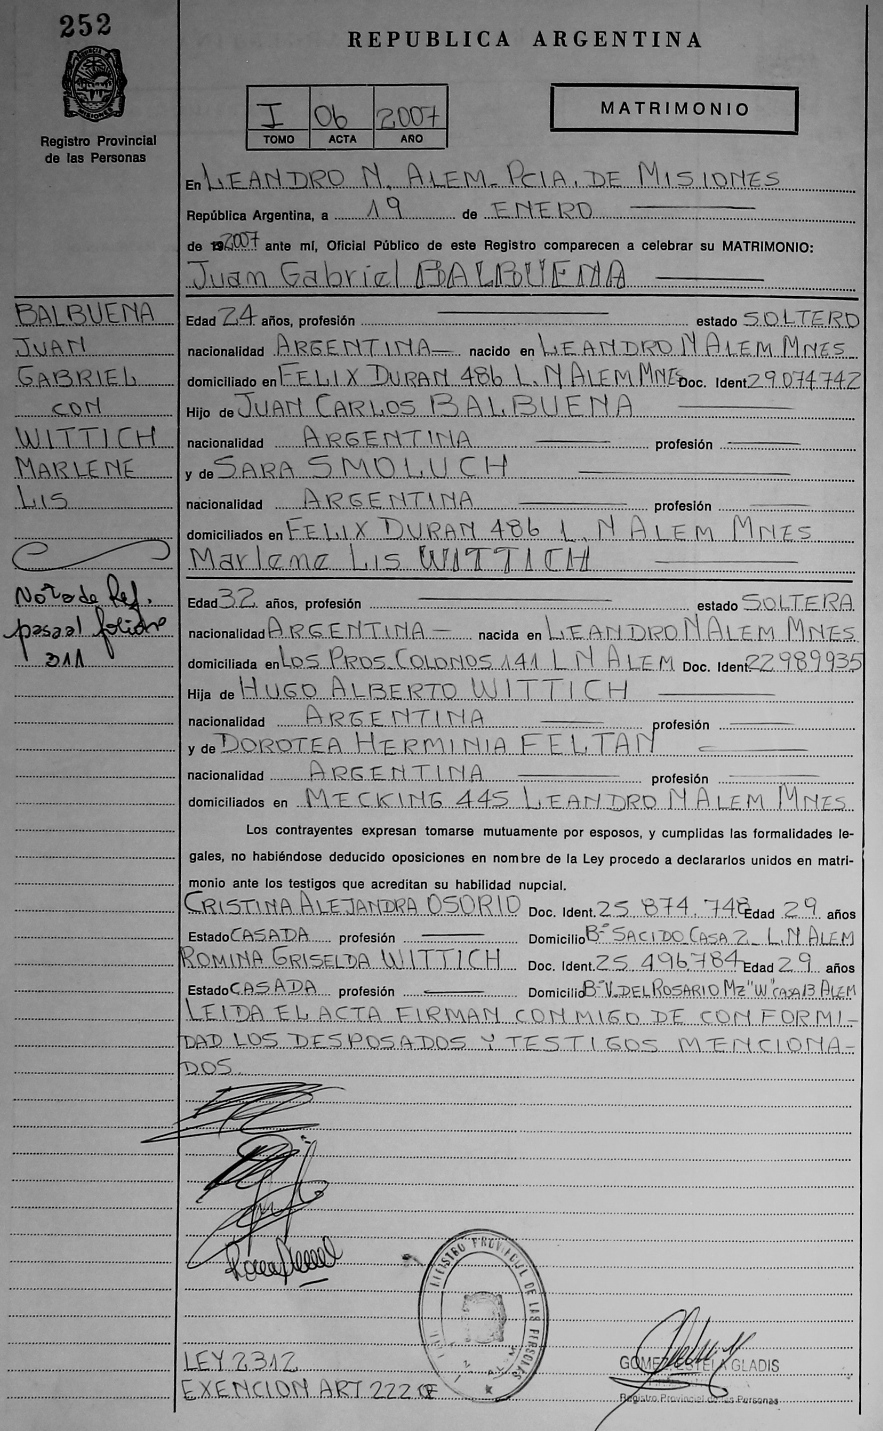 252
REPUBLICA ARGENTINA
Registro Provincial
de las Personas
I 06 2007
TOMO ACTA AÑO
MATRIMONIO
En LEANDRO N. ALEM - PCIA. DE MISIONES
República Argentina, a 19 de ENERO
de 192007 ante mí, Oficial Público de este Registro comparecen a celebrar su MATRIMONIO:
Juan Gabriel BALBUENA
BALBUENA
JUAN
GABRIEL
CON
WITTICH
MARLENE
LIS
Nota de Ref.
pasa al folio
211
Edad 24 años, profesión estado SOLTERO
nacionalidad ARGENTINA nacido en LEANDRO N ALEM MNES
domiciliado en FELIX DURAN 486 L. N ALEM MNES Doc. Ident. 29.074.742
Hijo de JUAN CARLOS BALBUENA
nacionalidad ARGENTINA profesión
y de SARA SMOLUCH
nacionalidad ARGENTINA profesión
domiciliados en FELIX DURAN 486 L. N ALEM MNES
Marlene Lis WITTICH
Edad 32 años, profesión estado SOLTERA
nacionalidad ARGENTINA nacida en LEANDRO N ALEM MNES
domiciliada en LOS PROS. COLONOS 141 L N ALEM Doc. Ident. 22.989.935
Hija de HUGO ALBERTO WITTICH
nacionalidad ARGENTINA profesión
y de DOROTEA HERMINIA FELTAN
nacionalidad ARGENTINA profesión
domiciliados en MECKING 445 LEANDRO N ALEM MNES
Los contrayentes expresan tomarse mutuamente por esposos, y cumplidas las formalidades le-
gales, no habiéndose deducido oposiciones en nombre de la Ley procedo a declararlos unidos en matri-
monio ante los testigos que acreditan su habilidad nupcial.
CRISTINA ALEJANDRA OSORIO Doc. Ident. 25.874.748 Edad 29 años
Estado CASADA profesión Domicilio Bº SACIDO CASA 2 L.N ALEM
ROMINA GRISELDA WITTICH Doc. Ident. 25.496.784 Edad 29 años
Estado CASADA profesión Domicilio Bº V. DEL ROSARIO Mz "W" CASA 13 ALEM
LEIDA EL ACTA FIRMAN CONMIGO DE CONFORMI-
DAD LOS DESPOSADOS Y TESTIGOS MENCIONA-
DOS
REGISTRO PROVINCIAL DE LAS PERSONAS
LEY 2312
EXENCION ART 222 CF
GOMEZ ESTELA GLADIS
Registro Provincial de las Personas